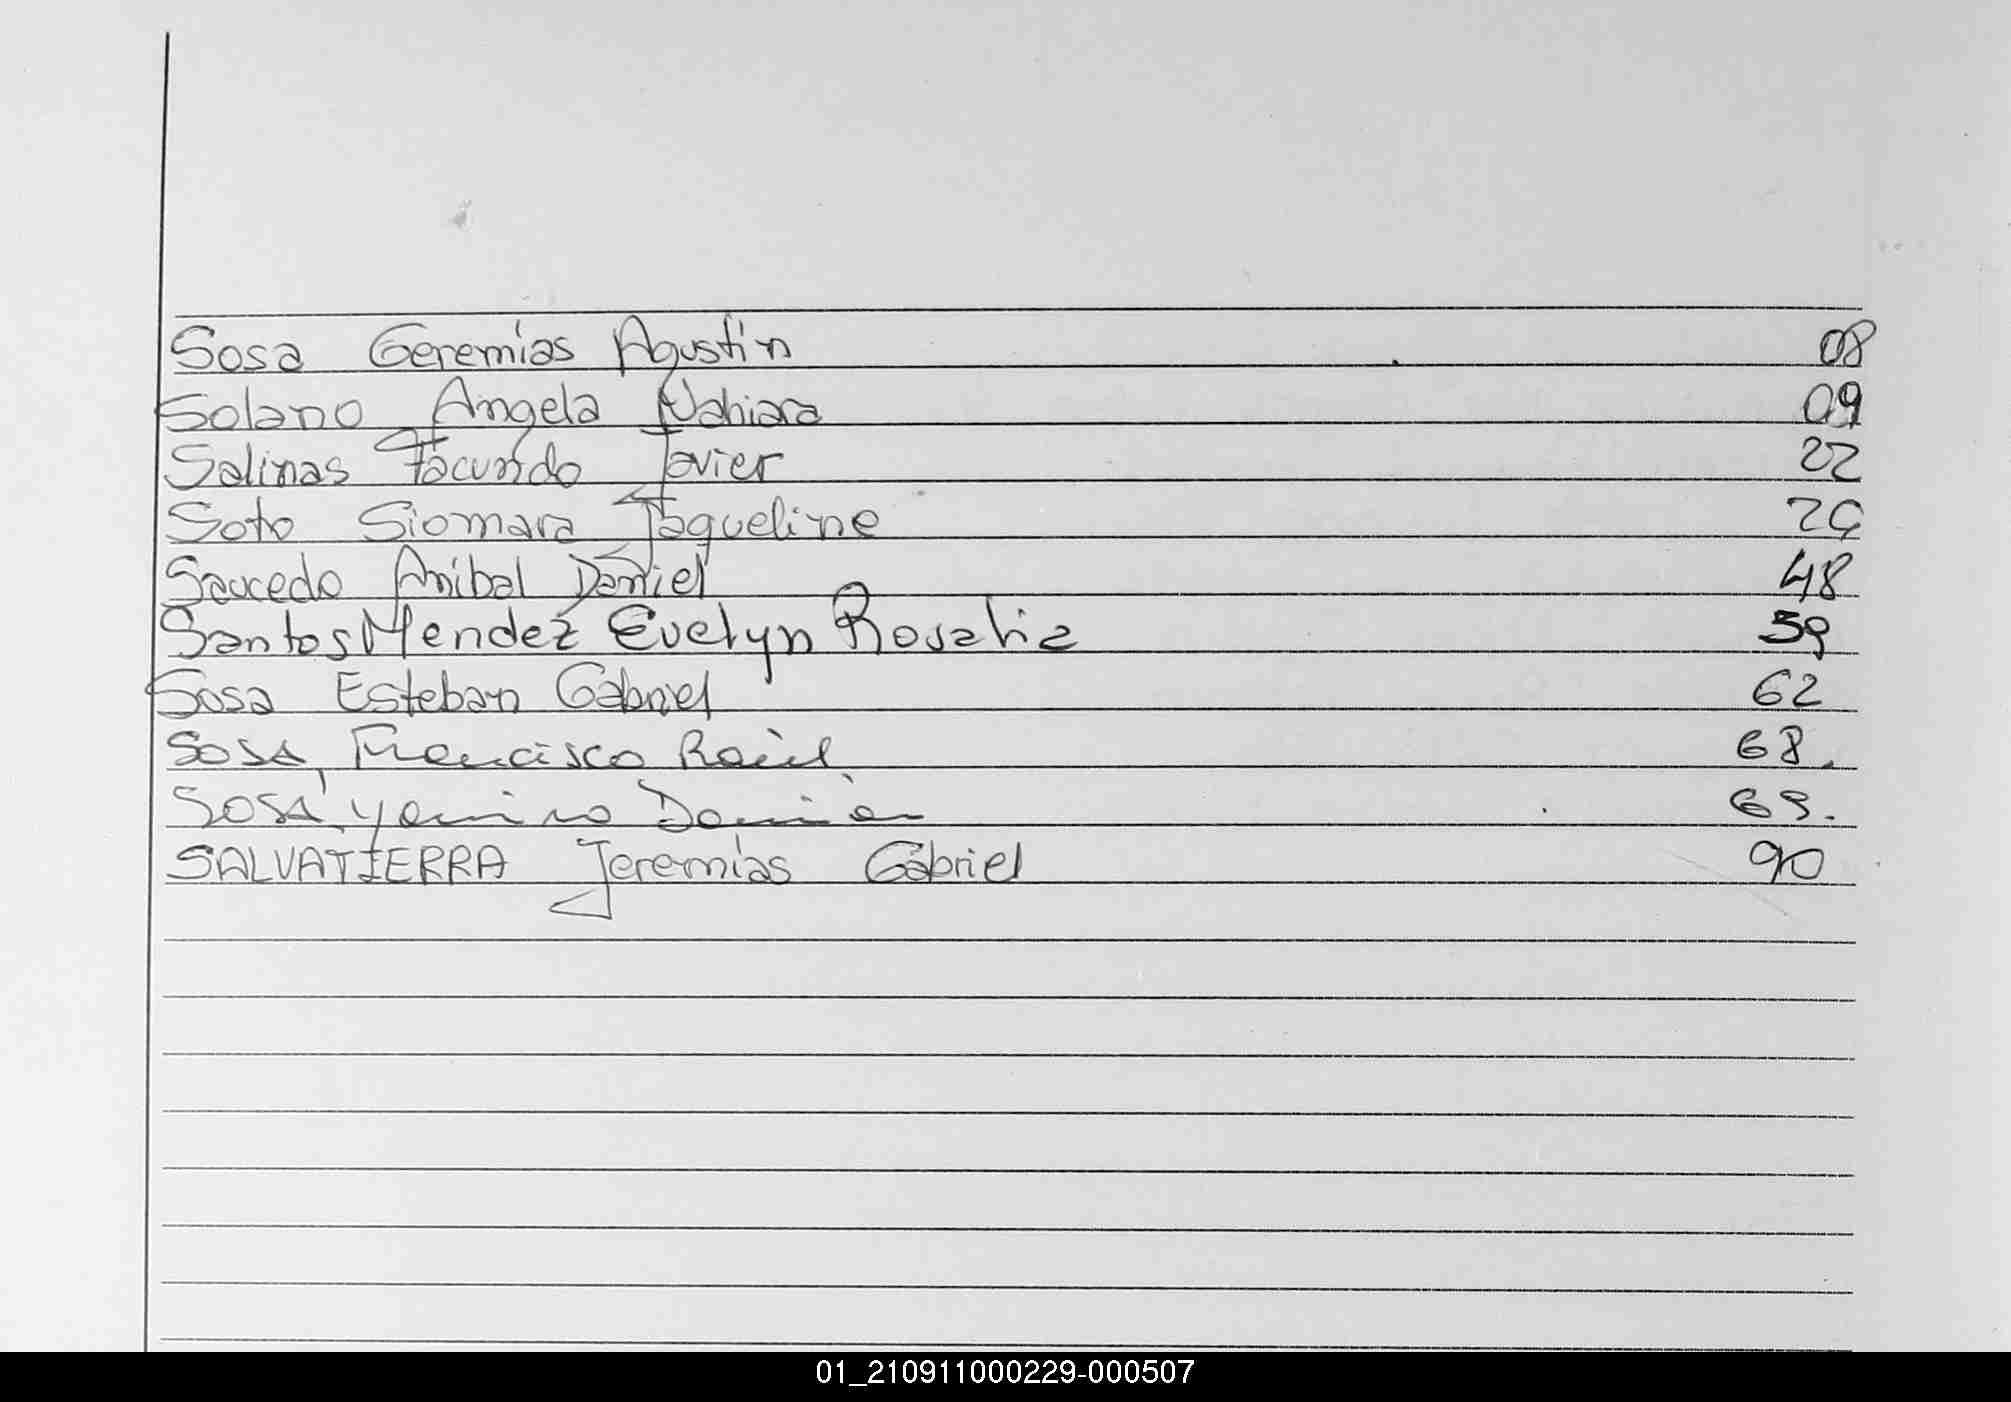 Sosa Geremias Agustin 08
Solano Angela Nahiara 09
Salinas Facundo Javier 22
Soto Siomara Jaqueline 29
Saucedo Anibal Daniel 48
Santos Mendez Evelyn Rosalia 59
Sosa Esteban Gabriel 62
SOSA, Francisco Raúl 68.
SOSA, Damián 69.
SALVATIERRA Jeremias Gabriel 90
01_210911000229-000507